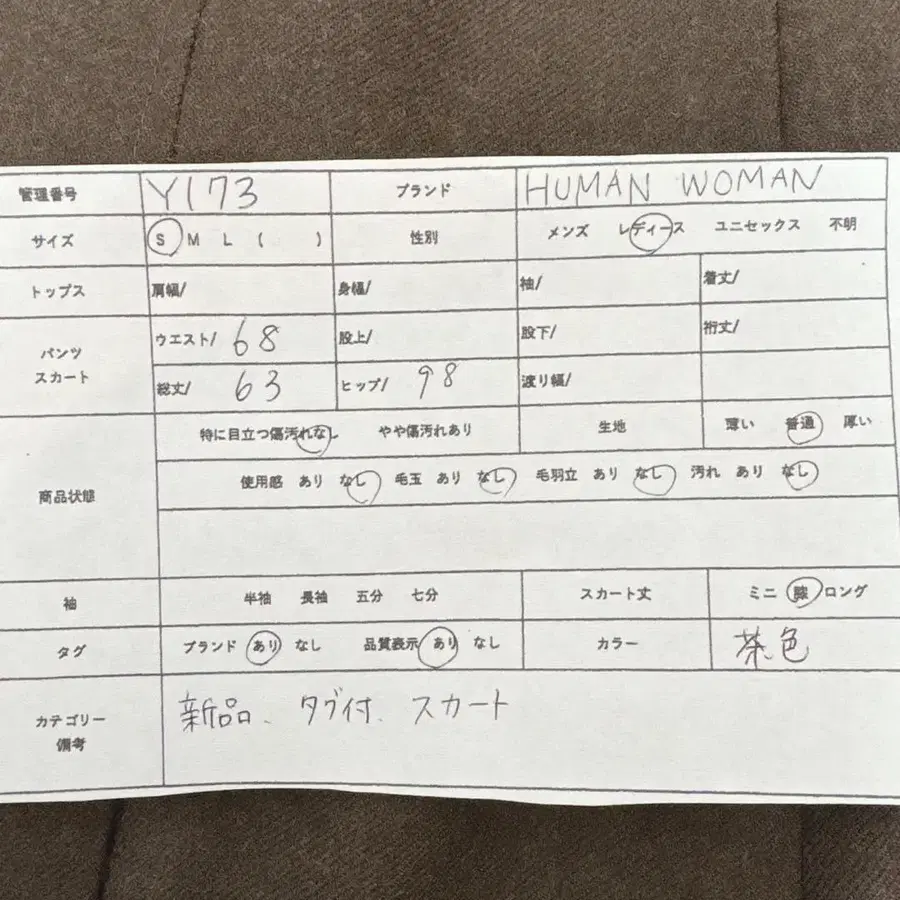 管理番号 Y173 ブランド HUMAN WOMAN
サイズ S M L ( ) 性別 メンズ レディース ユニセックス 不明
トップス 肩幅/ 身幅/ 袖/ 着丈/
パンツ スカート ウエスト/ 68 股上/ 股下/ 裄丈/
総丈/ 63 ヒップ/ 98 渡り幅/
特に目立つ傷汚れなし やや傷汚れあり 生地 薄い 普通 厚い
商品状態 使用感 あり なし 毛玉 あり なし 毛羽立 あり なし 汚れ あり なし
袖 半袖 長袖 五分 七分 スカート丈 ミニ 膝 ロング
タグ ブランド あり なし 品質表示 あり なし カラー 茶色
カテゴリー 備考 新品、タグ付、スカート